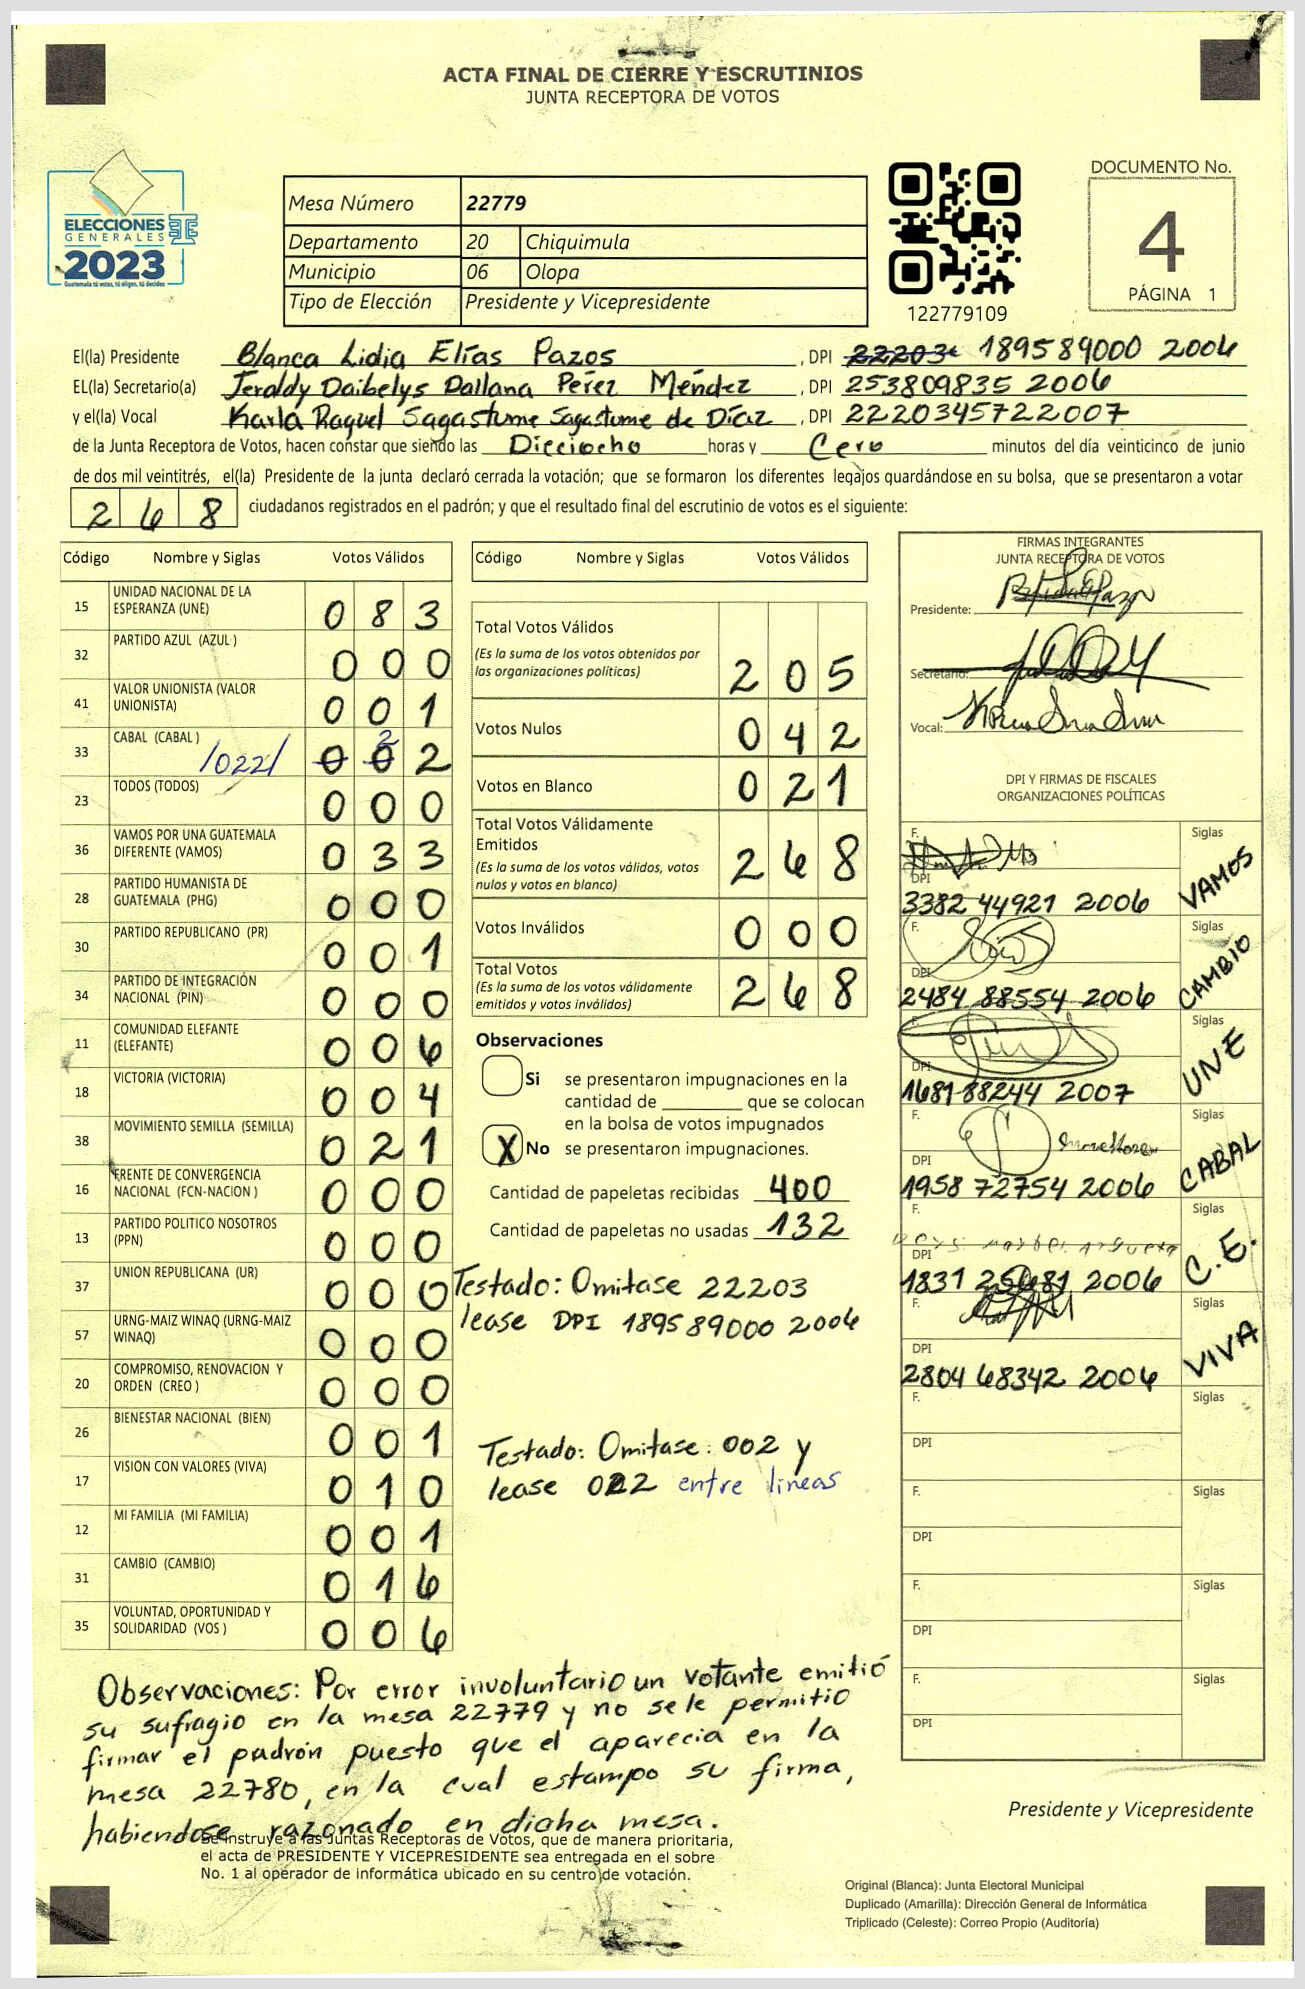 ACTA FINAL DE CIERRE Y ESCRUTINIOS
JUNTA RECEPTORA DE VOTOS
ELECCIONES
GENERALES
2023
Guatemala tú votas, tú eliges, tú decides
Mesa Número 22779
Departamento 20 Chiquimula
Municipio 06 Olopa
Tipo de Elección Presidente y Vicepresidente
122779109
DOCUMENTO No.
4
PÁGINA 1
El(la) Presidente Blanca Lidia Elías Pazos, DPI 189589000 2006
EL(la) Secretario(a) Jeraldy Daibelys Dallana Pérez Méndez, DPI 253809835 2006
y el(la) Vocal Karla Raquel Sagastume Sagastume de Díaz, DPI 2220345722007
de la Junta Receptora de Votos, hacen constar que siendo las Dieciocho horas y Cero minutos del día veinticinco de junio
de dos mil veintitrés, el(la) Presidente de la junta declaró cerrada la votación; que se formaron los diferentes legajos guardándose en su bolsa, que se presentaron a votar
268 ciudadanos registrados en el padrón; y que el resultado final del escrutinio de votos es el siguiente:
Código Nombre y Siglas Votos Válidos
15 UNIDAD NACIONAL DE LA ESPERANZA (UNE) 083
32 PARTIDO AZUL (AZUL ) 000
41 VALOR UNIONISTA (VALOR UNIONISTA) 001
33 CABAL (CABAL ) /022/ 002 2
23 TODOS (TODOS) 000
36 VAMOS POR UNA GUATEMALA DIFERENTE (VAMOS) 033
28 PARTIDO HUMANISTA DE GUATEMALA (PHG) 000
30 PARTIDO REPUBLICANO (PR) 001
34 PARTIDO DE INTEGRACIÓN NACIONAL (PIN) 000
11 COMUNIDAD ELEFANTE (ELEFANTE) 006
18 VICTORIA (VICTORIA) 004
38 MOVIMIENTO SEMILLA (SEMILLA) 021
16 FRENTE DE CONVERGENCIA NACIONAL (FCN-NACION ) 000
13 PARTIDO POLITICO NOSOTROS (PPN) 000
37 UNION REPUBLICANA (UR) 000
57 URNG-MAIZ WINAQ (URNG-MAIZ WINAQ) 000
20 COMPROMISO, RENOVACION Y ORDEN (CREO ) 000
26 BIENESTAR NACIONAL (BIEN) 001
17 VISION CON VALORES (VIVA) 010
12 MI FAMILIA (MI FAMILIA) 001
31 CAMBIO (CAMBIO) 016
35 VOLUNTAD, OPORTUNIDAD Y SOLIDARIDAD (VOS ) 006
Código Nombre y Siglas Votos Válidos
Total Votos Válidos 205
(Es la suma de los votos obtenidos por
las organizaciones políticas)
Votos Nulos 042
Votos en Blanco 021
Total Votos Válidamente
Emitidos 268
(Es la suma de los votos válidos, votos
nulos y votos en blanco)
Votos Inválidos 000
Total Votos 268
(Es la suma de los votos válidamente
emitidos y votos inválidos)
Observaciones
Si se presentaron impugnaciones en la
cantidad de ________ que se colocan
en la bolsa de votos impugnados
X No se presentaron impugnaciones.
Cantidad de papeletas recibidas 400
Cantidad de papeletas no usadas 132
Testado: Omitase 22203
lease DPI 189589000 2006
Testado: Omitase: 002 y
lease 022 entre lineas
FIRMAS INTEGRANTES
JUNTA RECEPTORA DE VOTOS
Presidente:
Secretario:
Vocal:
DPI Y FIRMAS DE FISCALES
ORGANIZACIONES POLÍTICAS
F. Siglas VAMOS
DPI
3382 44921 2006
F. Siglas CAMBIO
DPI
2484 88554 2006
F. Siglas UNE
DPI
1681 88244 2007
F. Siglas CABAL
DPI
1958 72754 2006
F. Siglas C.E.
DPI
1831 25481 2006
F. Siglas VIVA
DPI
2804 68342 2006
F. Siglas
DPI
F. Siglas
DPI
F. Siglas
DPI
F. Siglas
DPI
Observaciones: Por error involuntario un votante emitió
su sufragio en la mesa 22779 y no se le permitio
firmar el padrón puesto que el aparecia en la
mesa 22780, en la cual estampo su firma,
habiendose razonado en dicha mesa.
Se instruye a las Juntas Receptoras de Votos, que de manera prioritaria,
el acta de PRESIDENTE Y VICEPRESIDENTE sea entregada en el sobre
No. 1 al operador de informática ubicado en su centro de votación.
Presidente y Vicepresidente
Original (Blanca): Junta Electoral Municipal
Duplicado (Amarilla): Dirección General de Informática
Triplicado (Celeste): Correo Propio (Auditoría)